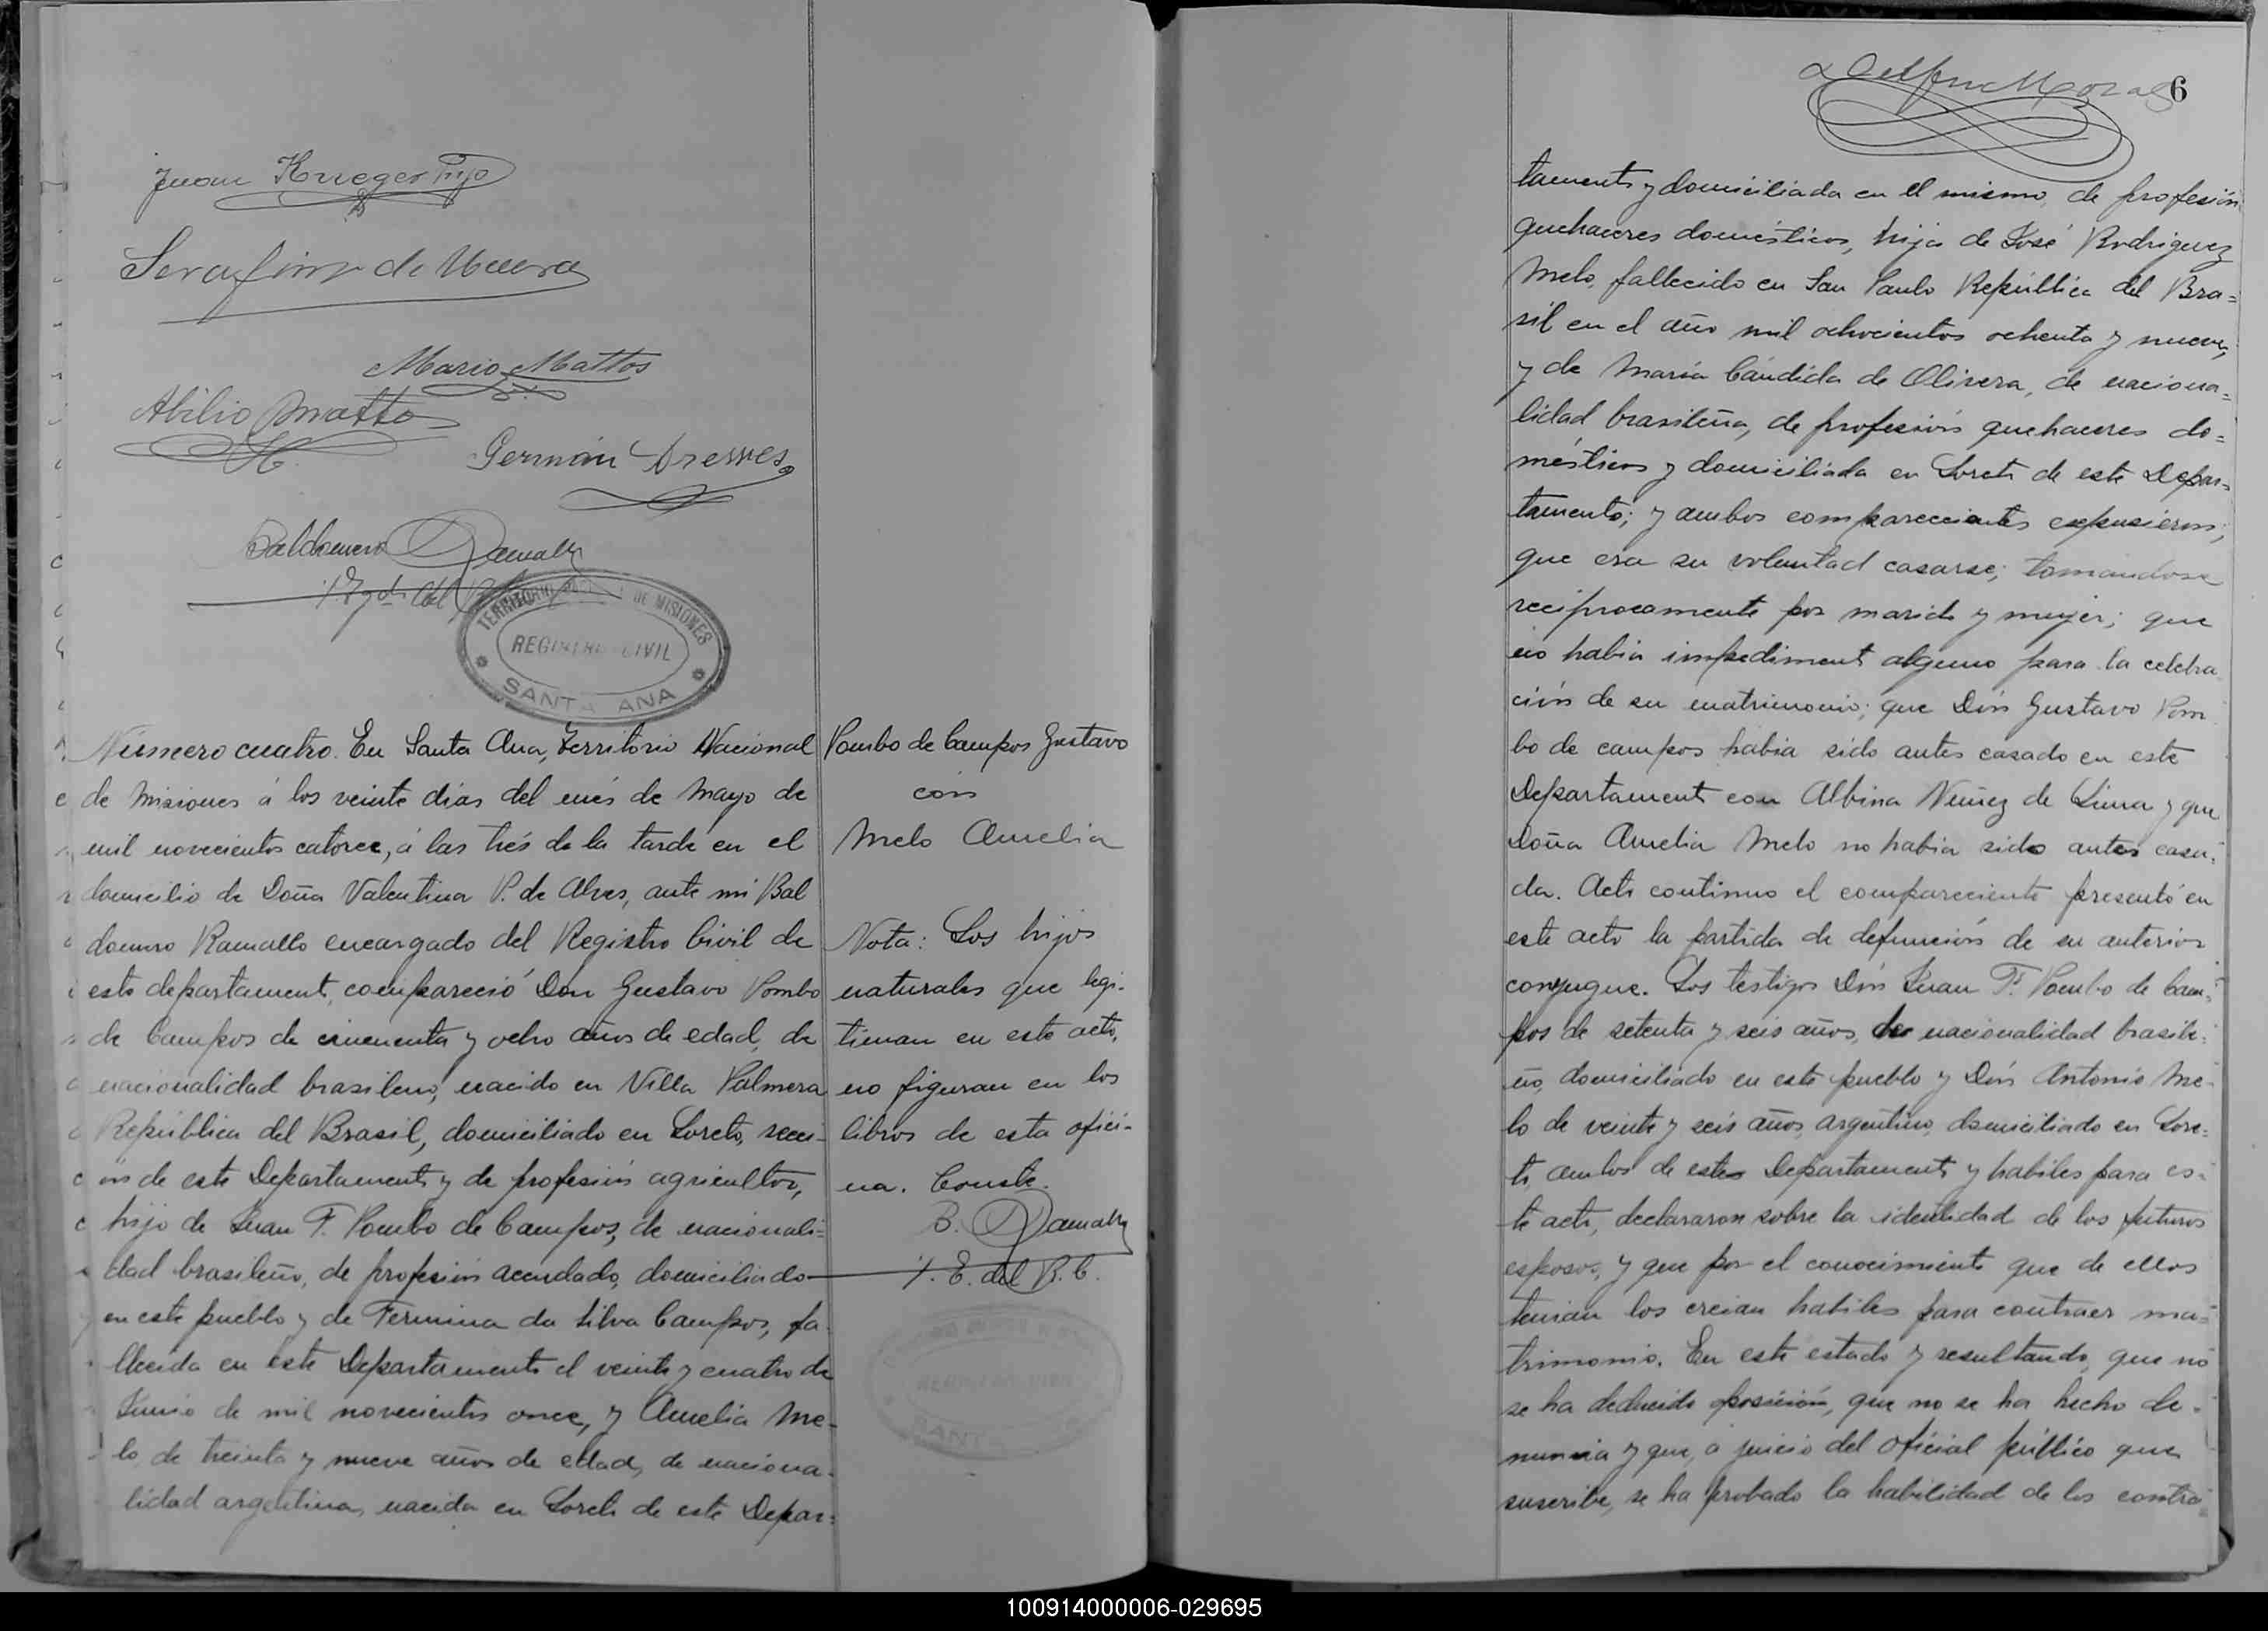 Juan Krueger hijo
Serafim de Moura
Mario Mattos
Abilio Matto
Germán Dresses
Baldomero Ramallo
TERRITORIO DE MISIONES
REGISTRO CIVIL
SANTA ANA
Número cuatro. En Santa Ana, Territorio Nacional
de Misiones á los veinte días del més de Mayo de
mil novecientos catorce, á las trés de la tarde en el
domicilio de Doña Valentina P. de Alves, ante mi Bal
domero Ramallo encargado del Registro Civil de
este departament, compareció Don Gustavo Pombo
de Campos de cincuenta y ocho años de edad, de
nacionalidad brasileno, nacido en Villa Palmera
República del Brasil, domiciliado en Loreto, secci-
ón de este Departament y de profesión agricultor,
hijo de Juan F. Pombo de Campos, de nacionali=
dad brasileño, de profesión acendado, domiciliado
en este pueblo y de Fermina da Silva Campos, fa
llecida en este Departamento el veinte y cuatro de
Junio de mil novecientos once, y Amelia Me-
lo de treinta y nueve años de edad, de naciona-
lidad argentina, nacida en Loreto de este Depar=
Pombo de Campos Gustavo
con
Melo Amelia
Nota: Los hijos
naturales que legi-
timan en este acto,
no figuran en los
libros de esta ofici-
na. Conste.
B. Ramallo
E. del R. C.
6
tamento y domiciliada en el mismo, de profesión
quehaceres domésticos, hija de José Rodriguez
Melo, fallecido en San Paulo República del Bra=
sil en el año mil ochocientos ochenta y nueve,
y de María Cándida de Olivera, de naciona=
lidad brasileña, de profesión quehaceres do=
mésticos y domiciliada en Loreto de este Depar=
tamento; y ambos comparecientes expusieron;
que era su voluntad casarse; tomandose
recíprocamente por marido y mujer; que
no habia impediment alguno para la celebra
ción de su matrimonio; que Dón Gustavo Pom
bo de campos habia sido antes casado en este
Departament con Albina Nuñez de Lima y que
Doña Amelia Melo no habia sido antes casa=
da. Acto continuo el compareciente presentó en
este acto la partida de defunción de su anterior
conyugue. Los testigos Dón Juan F. Pombo de Cam=
pos de setenta y seis años, de nacionalidad brasile=
ño, domiciliado en este pueblo y Dón Antonio Me-
lo de veinte y seis años, argentino, domiciliado en Lore=
to, ambos de este Departament y habiles para es-
te acto, declararon sobre la identidad de los futuros
esposos, y que por el conocimiento que de ellos
tenian los creian habiles para contraer ma=
trimonio. En este estado y resultando, que no
se ha deducido oposición, que no se ha hecho de-
nuncia y que, a juicio del oficial público que
suscribe, se ha probado la habilidad de los contra=
100914000006-029695